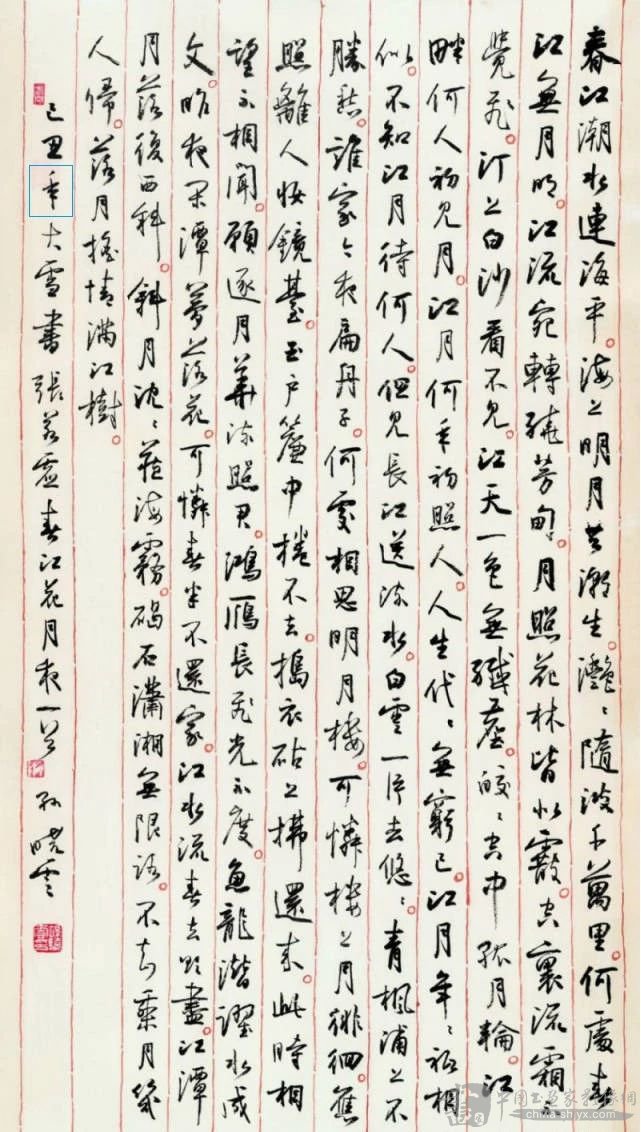 春江潮水連海平。海上明月共潮生。灧々隨波千萬里。何處春
江無月明。江流宛轉繞芳甸。月照花林皆似霰。空裏流霜不
覺飛。汀上白沙看不見。江天一色無纖塵。皎々空中孤月輪。江
畔何人初見月。江月何年初照人。人生代々無窮已。江月年々祗相
似。不知江月待何人。但見長江送流水。白雲一片去悠々。青楓浦上不
勝愁。誰家今夜扁舟子。何處相思明月樓。可憐樓上月徘徊。應
照離人妝鏡臺。玉戶簾中捲不去。搗衣砧上拂還來。此時相
望不相聞。願逐月華流照君。鴻雁長飛光不度。魚龍潛躍水成
文。昨夜閑潭夢落花。可憐春半不還家。江水流春去欲盡。江潭
月落復西斜。斜月沈々藏海霧。碣石瀟湘無限路。不知乘月幾
人歸。落月搖情滿江樹。
己丑年大雪書張若虛春江花月夜一首 孫曉雲
china-shyx.com